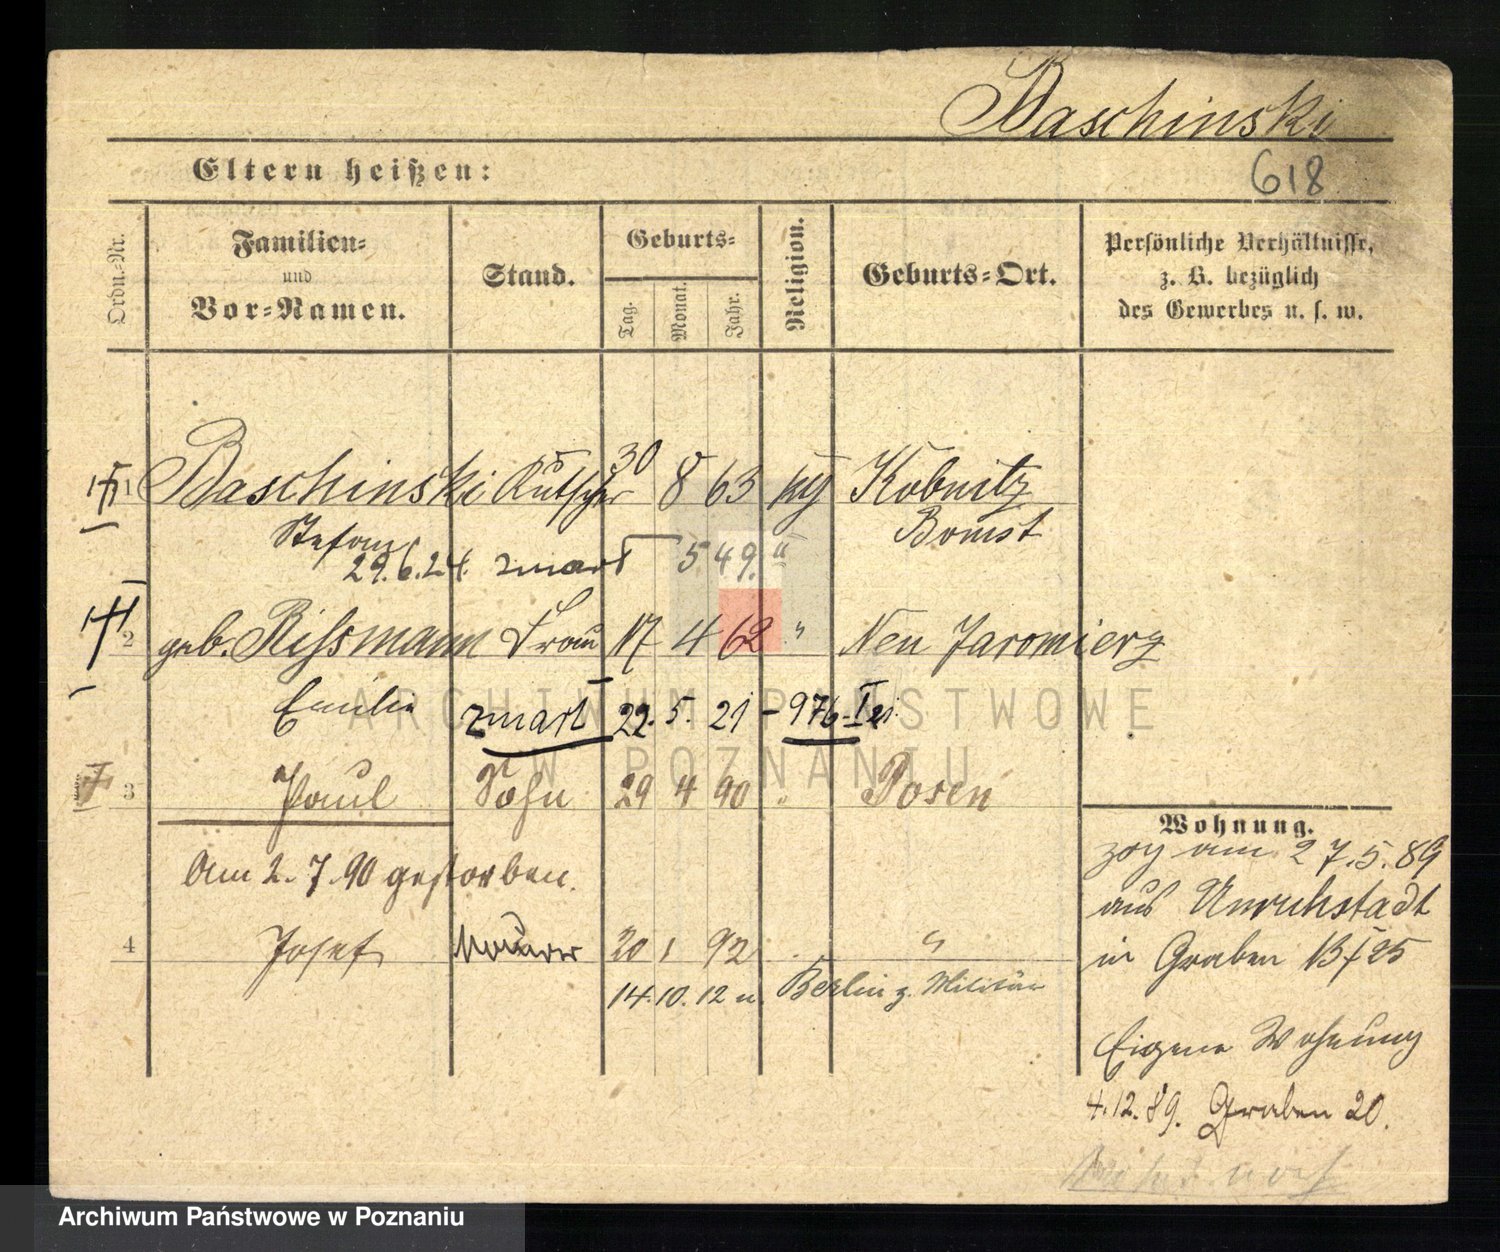 Baschinski
Eltern heißen:
618
Ordn.-Nr.
Familien-
und
Vor-Namen.
Stand.
Geburts-
Tag.
Monat.
Jahr.
Religion.
Geburts-Ort.
Persönliche Verhältnisse,
z. B. bezüglich
des Gewerbes u. s. w.
1 Baschinski Kutscher 30 8 63 Köbnitz
Stefan Bomst
29.6.24. zmarł 5 49. "
2 geb. Rissmann Frau 17 4 62 " Neu Jaromierz
Emilie zmarł 22. 5. 21 - 976
3 Paul Sohn 29 4 90 " Posen
Am 2. 7. 90 gestorben.
4 Josef Maurer 20 1 92 "
14. 10. 12 n. Berlin z. Militär
Wohnung.
zog am 27.5.89
aus Unruhstadt
in Graben 13/25
Eigene Wohnung
4.12.89. Graben 20.
ARCHIWUM PAŃSTWOWE
W POZNANIU
Archiwum Państwowe w Poznaniu